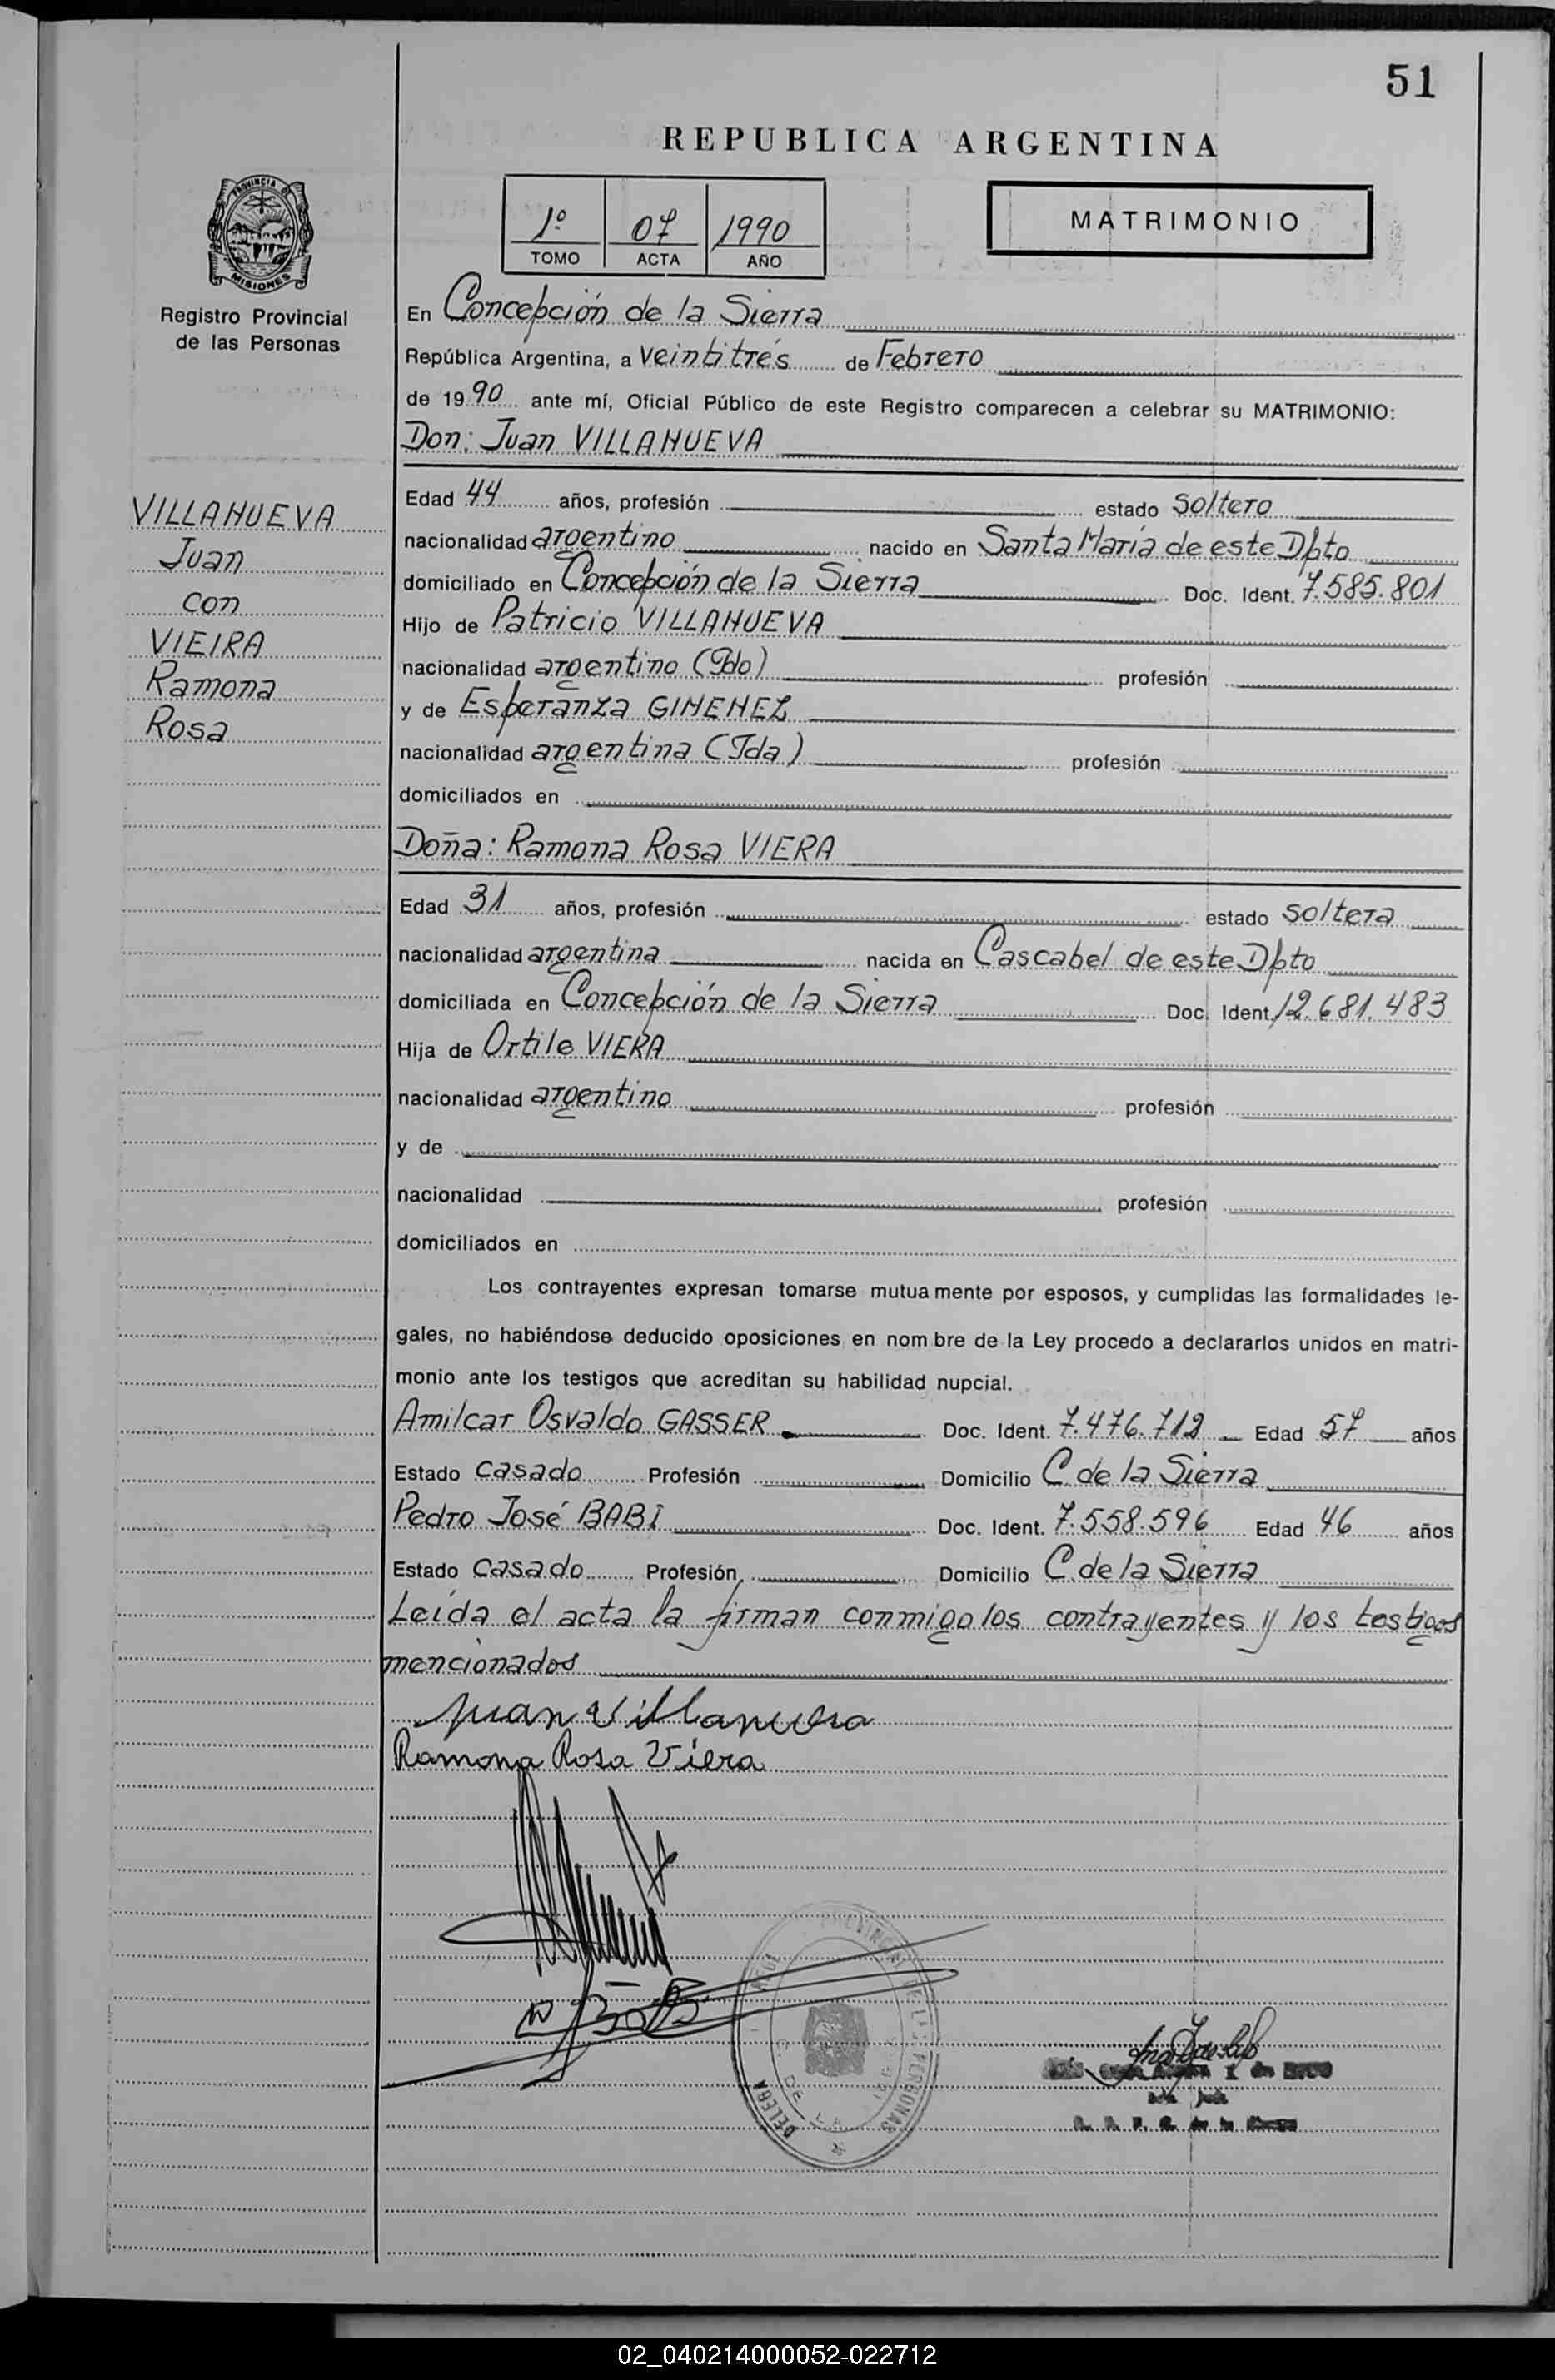 51
REPUBLICA ARGENTINA
1º 07 1990
TOMO ACTA AÑO
MATRIMONIO
PROVINCIA DE
MISIONES
Registro Provincial
de las Personas
VILLANUEVA
Juan
con
VIEIRA
Ramona
Rosa
En Concepción de la Sierra
República Argentina, a veintitrés de Febrero
de 1990 ante mí, Oficial Público de este Registro comparecen a celebrar su MATRIMONIO:
Don: Juan VILLANUEVA
Edad 44 años, profesión estado soltero
nacionalidad argentino nacido en Santa María de este Dpto
domiciliado en Concepción de la Sierra Doc. Ident. 7.585.801
Hijo de Patricio VILLANUEVA
nacionalidad argentino (Fdo) profesión
y de Esperanza GIMENEZ
nacionalidad argentina (Fda) profesión
domiciliados en
Doña: Ramona Rosa VIERA
Edad 31 años, profesión estado soltera
nacionalidad argentina nacida en Cascabel de este Dpto
domiciliada en Concepción de la Sierra Doc. Ident. 12.681.483
Hija de Ortile VIERA
nacionalidad argentino profesión
y de
nacionalidad profesión
domiciliados en
Los contrayentes expresan tomarse mutuamente por esposos, y cumplidas las formalidades le-
gales, no habiéndose deducido oposiciones en nombre de la Ley procedo a declararlos unidos en matri-
monio ante los testigos que acreditan su habilidad nupcial.
Amilcar Osvaldo GASSER Doc. Ident. 7.476.712 Edad 57 años
Estado casado Profesión Domicilio C. de la Sierra
Pedro José BABI Doc. Ident. 7.558.596 Edad 46 años
Estado casado Profesión Domicilio C. de la Sierra
Leída el acta la firman conmigo los contrayentes y los testigos
mencionados
Juan Villanueva
Ramona Rosa Viera
PROVINCIAL DE LAS PERSONAS
02_040214000052-022712